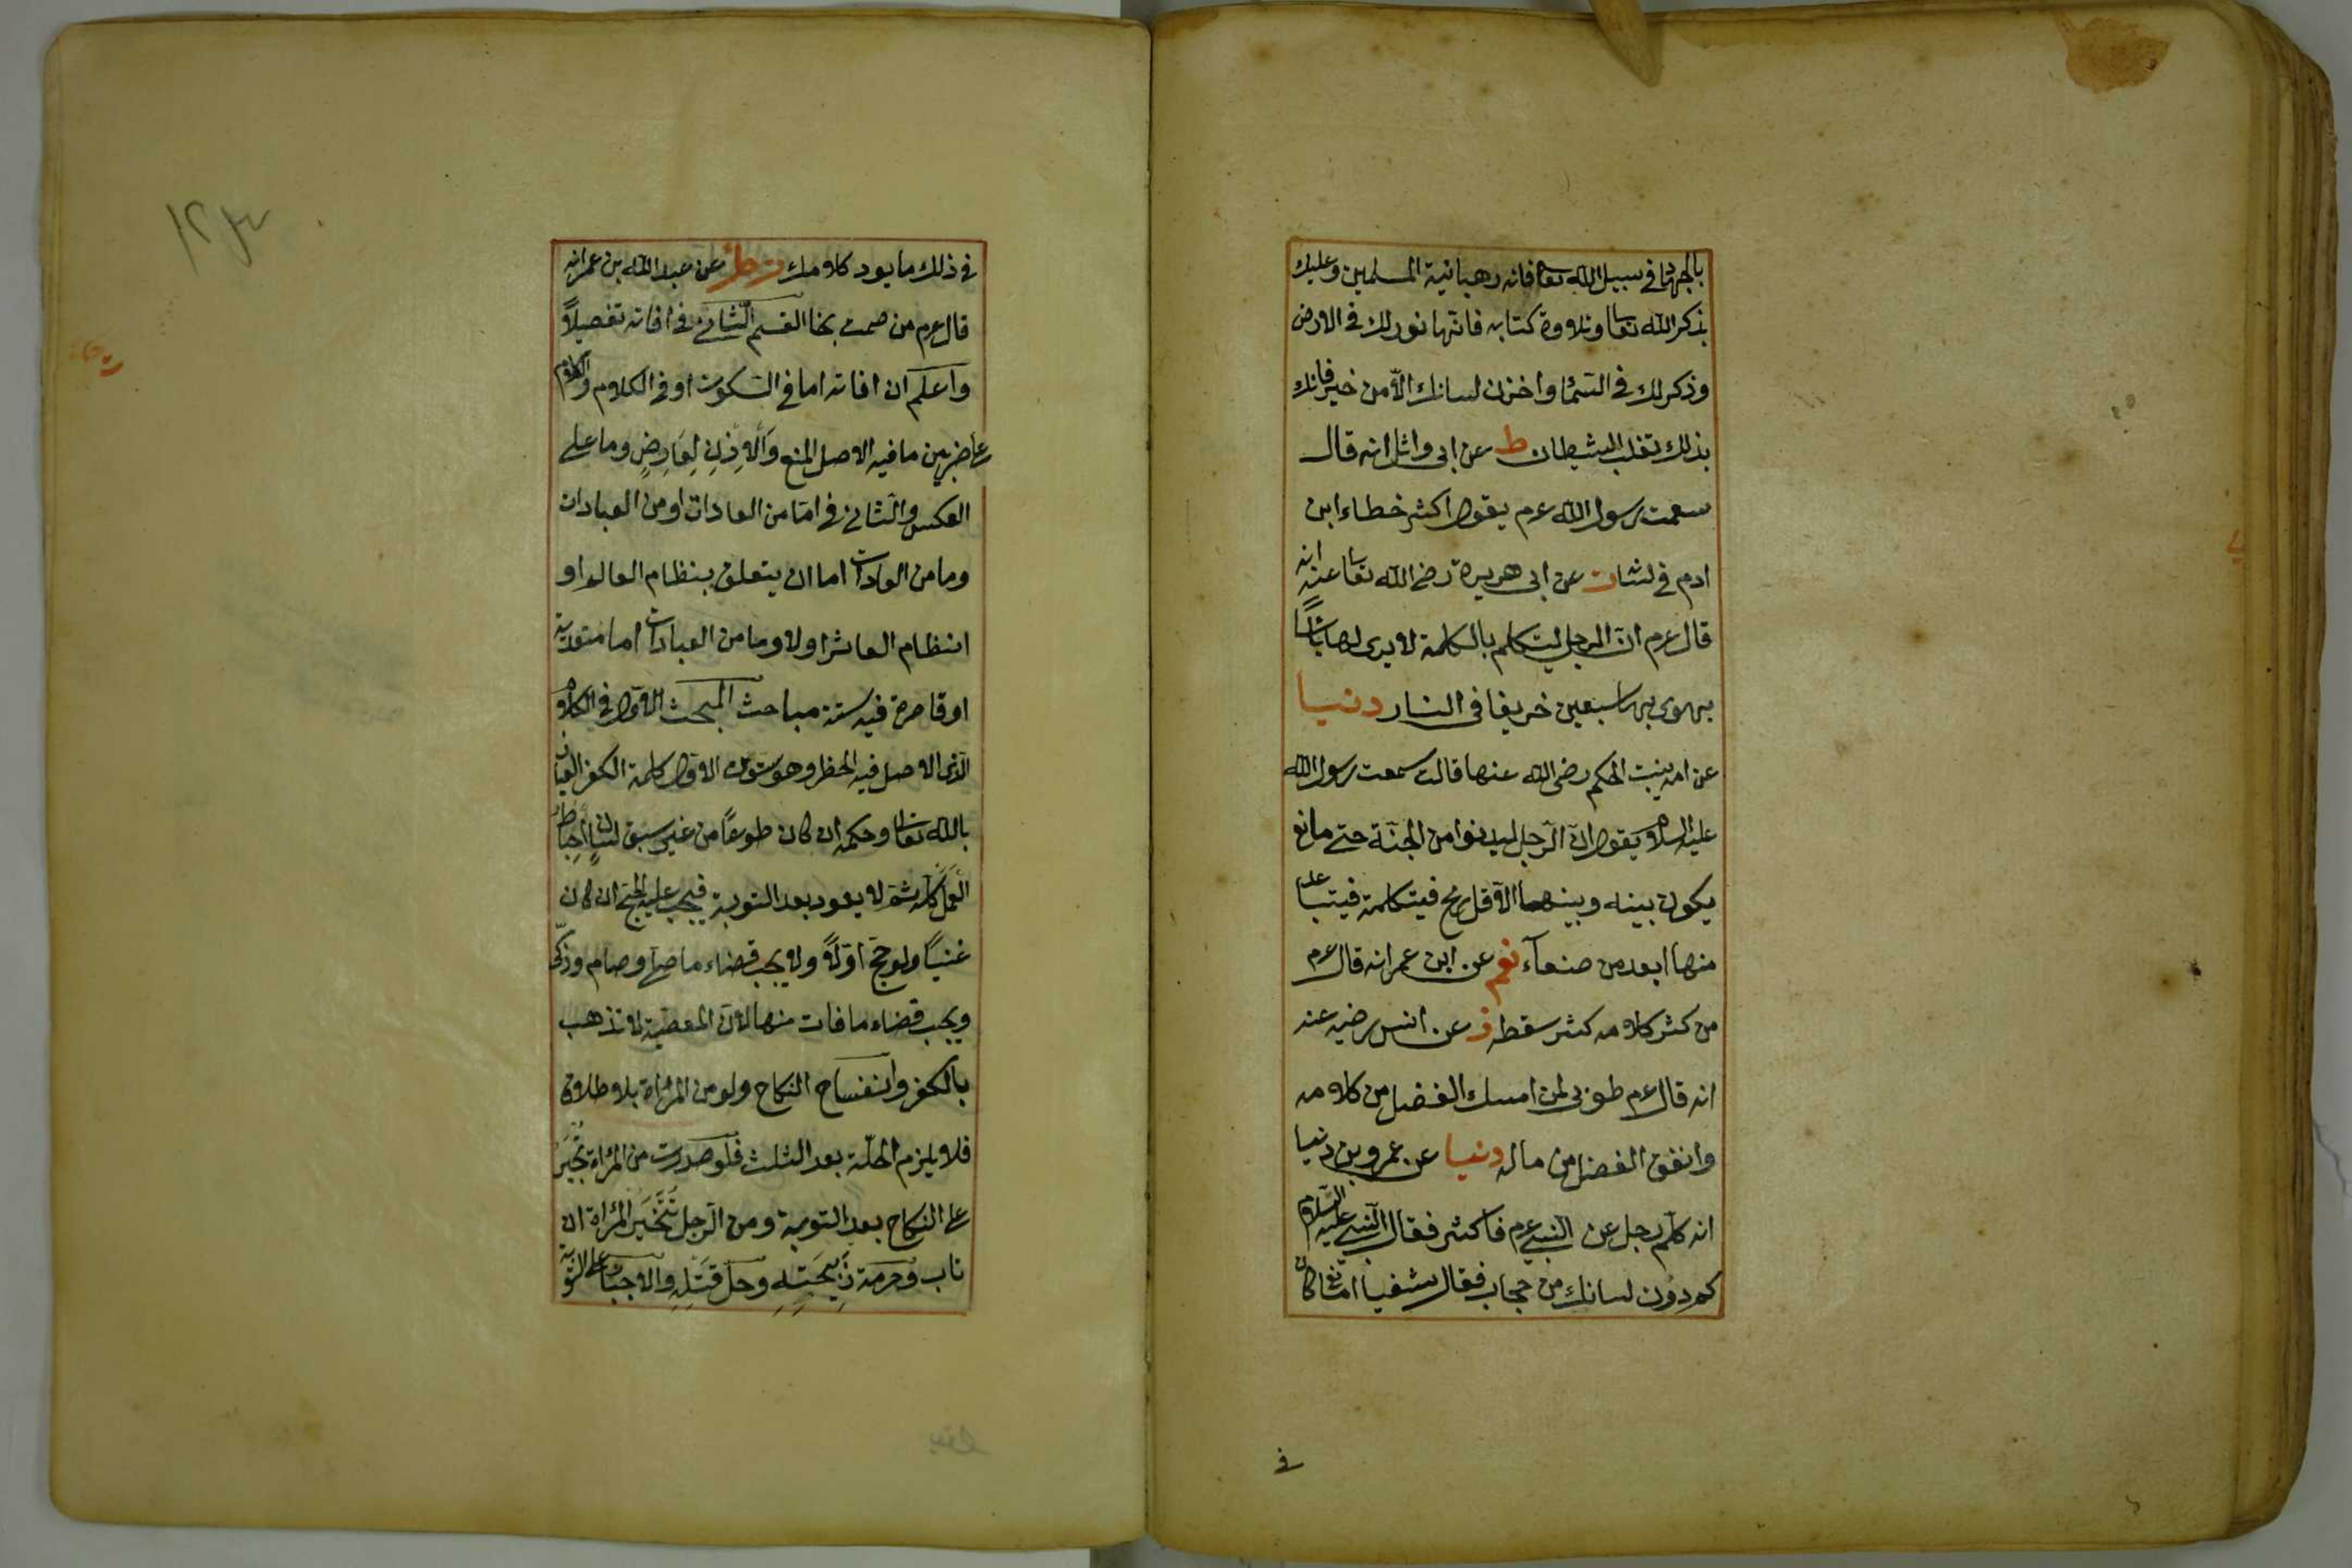 بالجهاد في سبيل الله تعا فانه رهبانية المسلمين وعليك
بذكر الله تعا وتلاوة كتابه فانها نور لك في الارض
وذكر لك في السماء واخزن لسانك الا من خير فانك
بذلك تغلب الشيطان ط عن ابى وائل انه قال
سمعت رسول الله عرم يقول اكثر خطاء ابن
ادم في لسانه ت عن ابى هريرة رضى الله تعا عنه انه
قال عرم ان الرجل ليتكلم بالكلمة لا يرى بها باسا
يهوى بها سبعين خريفا فى النار دنيا
عن امة بنت الحكم رضى الله عنها قالت سمعت رسول الله
عليه السلام يقول ان الرجل ليدنوا من الجنة حتى ما
يكون بينه وبينهما الا قل رمح فيتكلمة فيتباعد
منها ابعد من صنعآء نعم عن ابن عمر انه قال عرم
من كثر كلامه كثر سقطه ز عن انس رضيه عنه
انه قال عرم طوبى لمن امسك الفضل من كلامه
وانفق الفضل من ماله دنيا عن عمرو بن دنيا
انه كلم رجل عن النبى عرم فاكثر فقال النبى عليه السلام
كم دون لسانك من حجاب فقال شفتيا امّا كان
في
في ذلك ما يرد كلامك ت طز عن عبد الله بن عمر انه
قال عرم من صمت نجا القسم الثانى في افاته تفصيلاً
واعلم ان افاته اما في السكوت او في الكلام والكلام
على ضربين ما فيه الاصل المنع والاذن لعارض وما على
العكس والثانى في اما من العادات او من العبادات
وما من العادات اما ان يتعلق بنظام العالم او
انتظام المعاش او لا وما من العبادات اما متعدية
او قاصرة فيه ستة مباحث المبحث الاول في الكلام
الذى الاصل فيه الحظر وهو ستون الاول كلمة الكفر العياذ
بالله تعا وحكمه ان كان طوعا من غير سبق لسان احباط
العمل كله ثم لا يعود بعد التوبة فيجب عليه الحج ان كان
غنيا ولو حج اولا ولا يجب قضاء ما صلى وصام وزكى
ويجب قضاء ما فات منها لان المعصية لا تذهب
بالكفر وانفساخ النكاح ولو من المرأة بلا طلاق
فلا يلزم الحلة بعد الثلث فلو صدرت من المرأة تجبر
على النكاح بعد التوبة ومن الرجل تتخير المرأة ان
تاب وحرمة ذبيحته وحل قتله والاجبار على التوبة
١٢٣